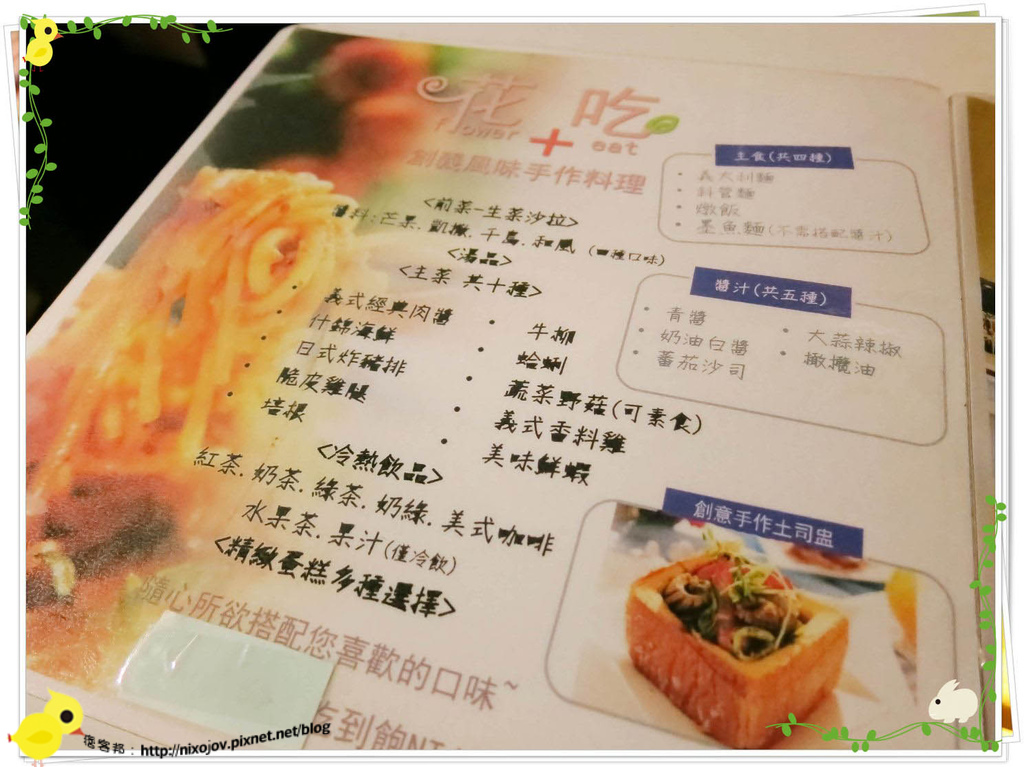 花 吃
flower + eat
創藝風味手作料理
<前菜-生菜沙拉>
醬料:芒果.凱撒.千島.和風 (四種口味)
<湯品>
<主菜 共十種>
• 義式經典肉醬
• 什錦海鮮
• 日式炸豬排
• 脆皮雞腿
• 培根
• 牛柳
• 蛤蜊
• 蔬菜野菇(可素食)
• 義式香料雞
• 美味鮮蝦
<冷熱飲品>
紅茶.奶茶.綠茶.奶綠.美式咖啡
水果茶.果汁(僅冷飲)
<精緻蛋糕多種選擇>
隨心所欲搭配您喜歡的口味~
吃到飽NT
主食(共四種)
• 義大利麵
• 斜管麵
• 燉飯
• 墨魚麵(不需搭配醬汁)
醬汁(共五種)
• 青醬
• 奶油白醬
• 蕃茄沙司
• 大蒜辣椒
• 橄欖油
創意手作土司盅
痞客邦：http://nixojov.pixnet.net/blog